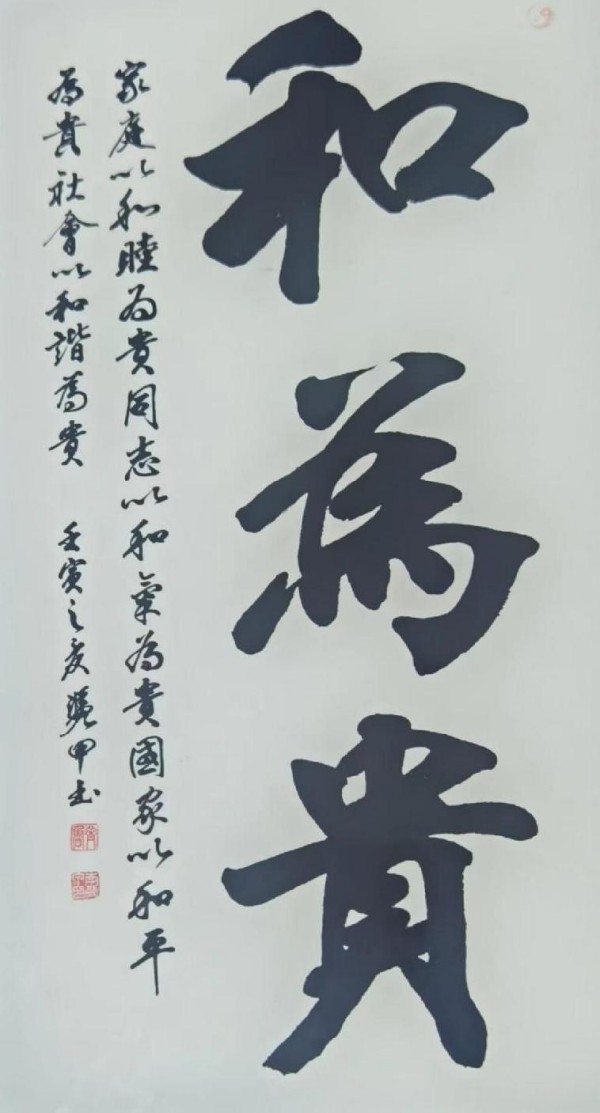 和為貴
家庭以和睦为貴同志以和氣为貴國家以和平
為貴社會以和諧為貴 壬寅之夏 甲书